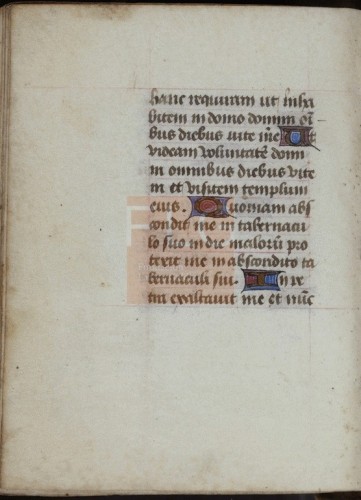 hanc requiram ut inha
bitem in domo domini oī
bus diebus uite mē Ut
videam voluntatē domi
in omnibus diebus vite
m et visitem templum
eius. Quoniam abs
condit me in tabernacu
lo suo in die malorū pro
texit me in abscondito ta
bernaculi sui. In pe
tra exaltavit me et nūc